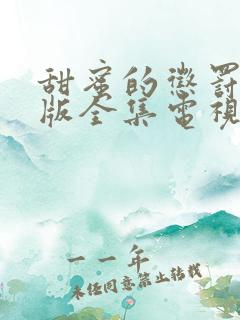 甜蜜的懲罰
版全集電視
一一年
未经同意禁止转载